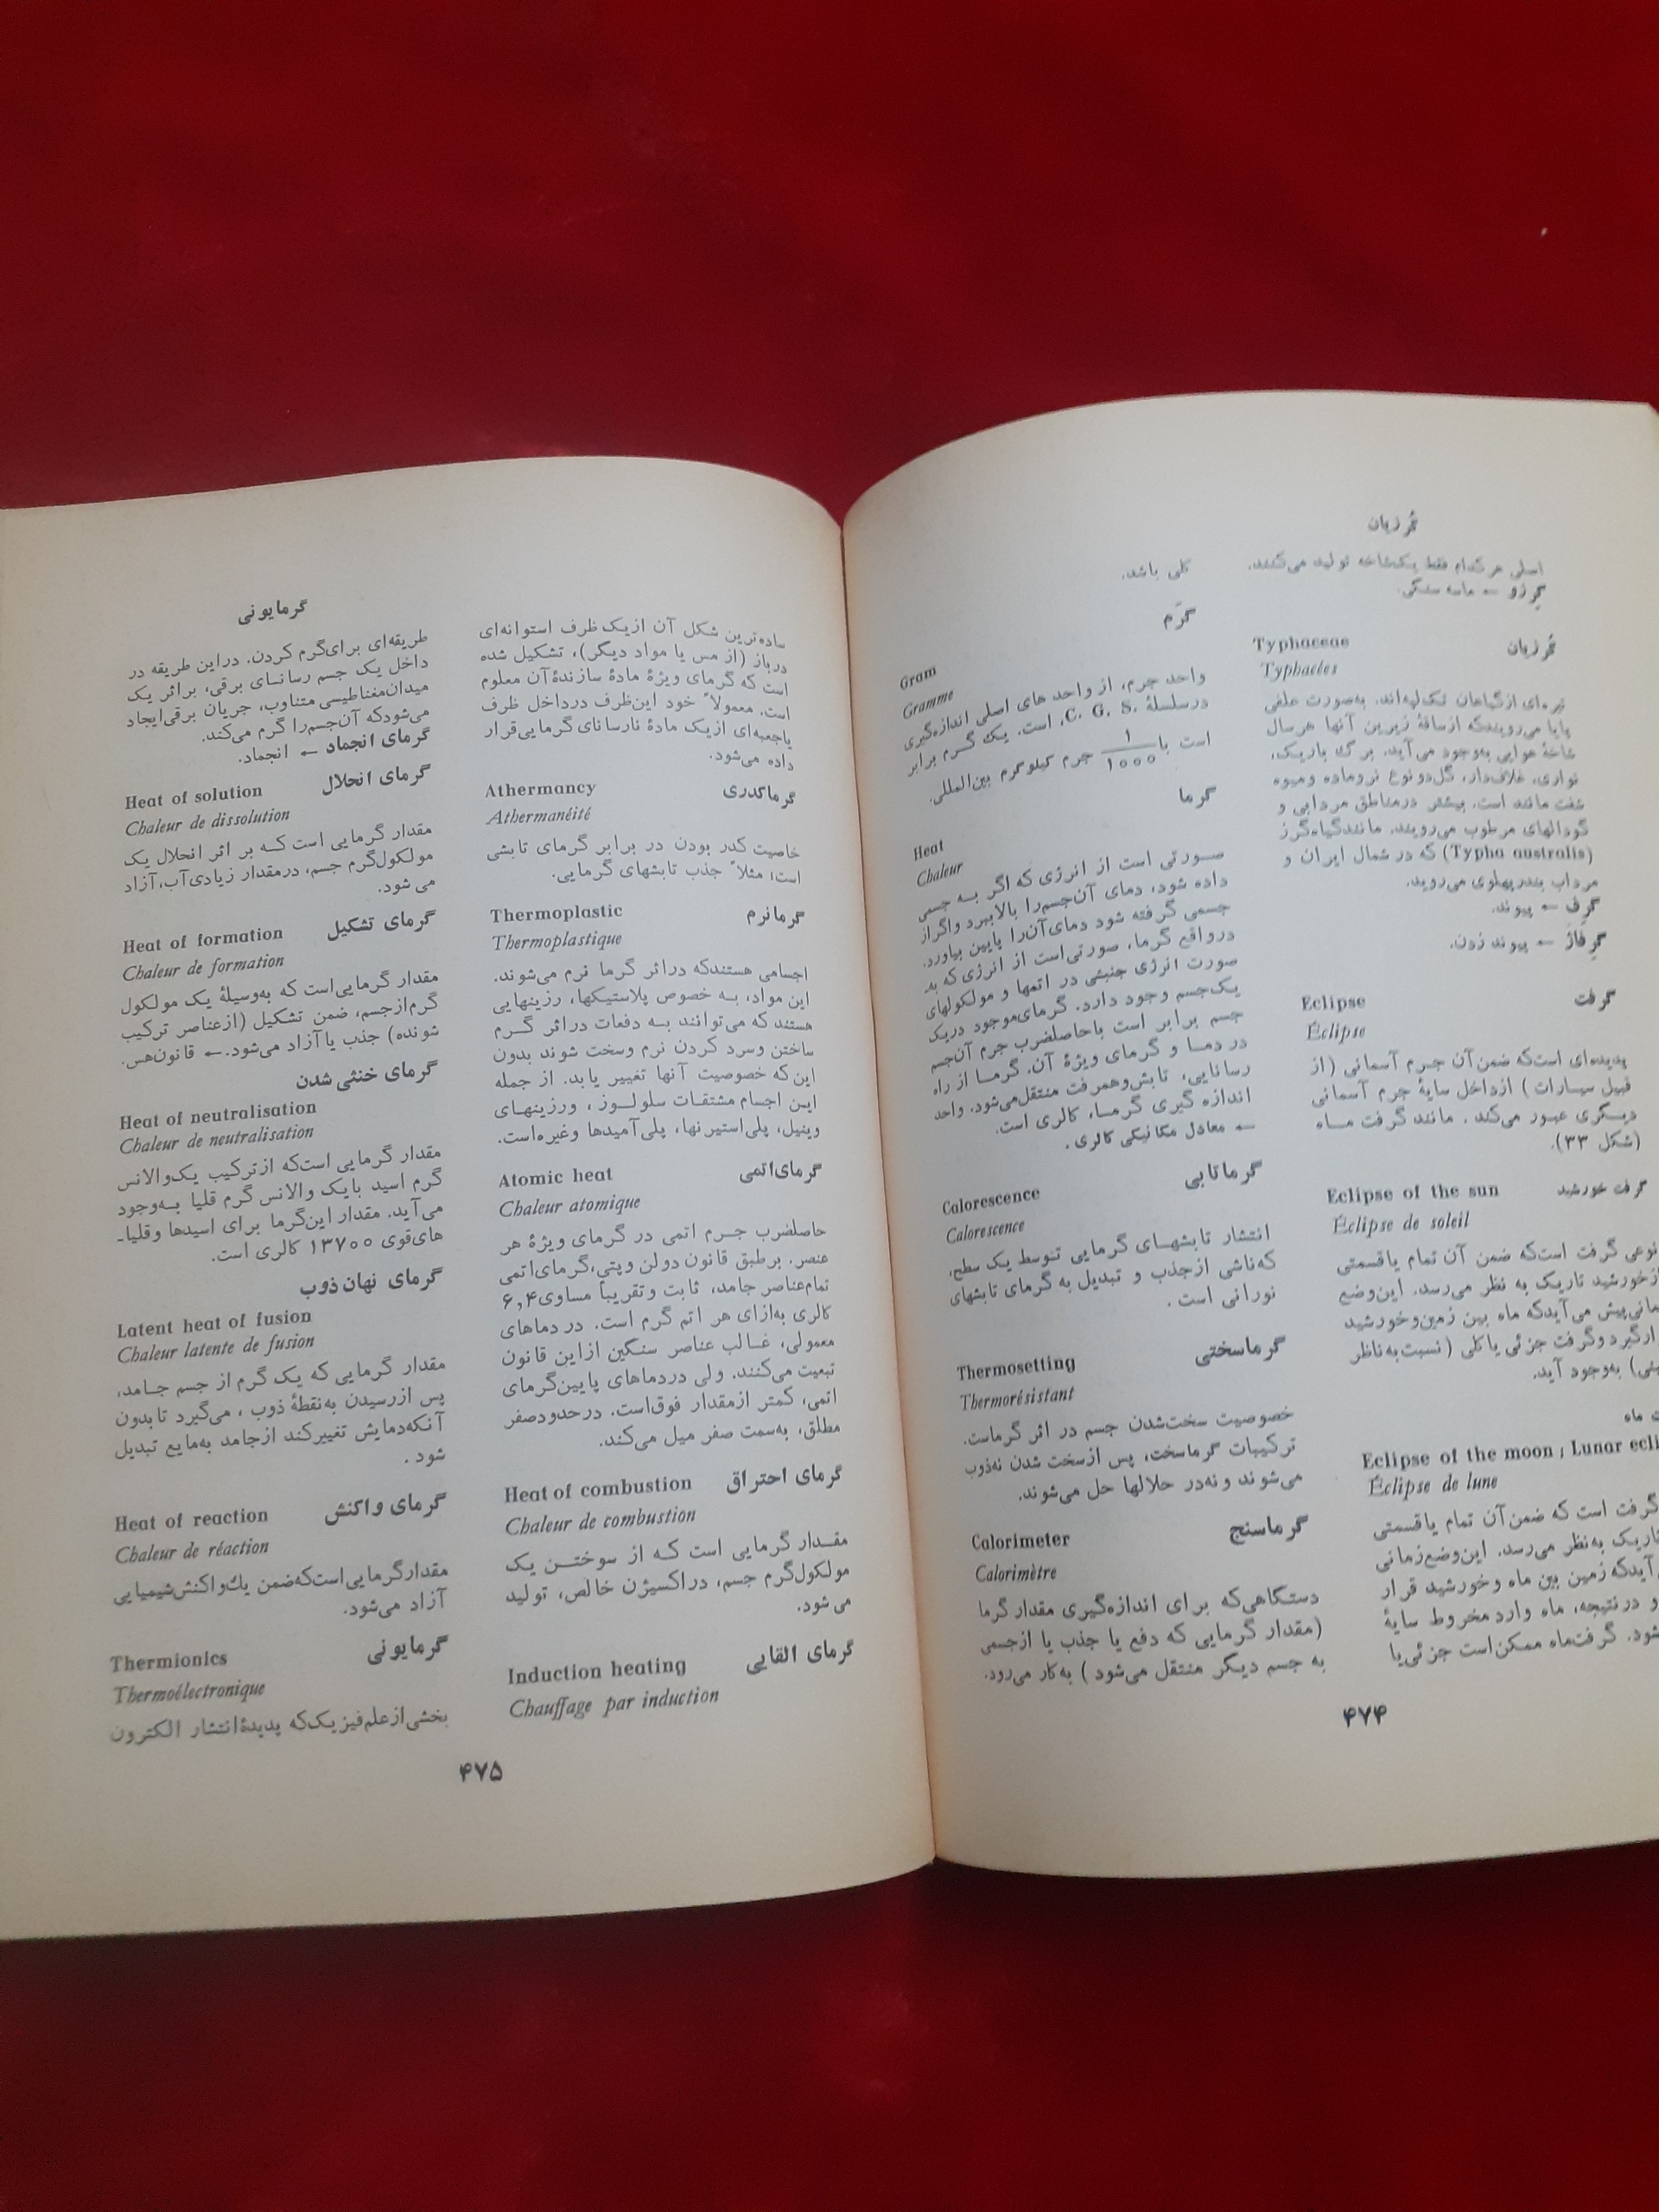 گرزیان
اصلی هرکدام فقط یک‌شاخه تولید می‌کنند.
گرزو ← ماسه سنگی.
گرزیان
Typhaceae
Typhacées
تیره‌ای ازگیاهان تک‌لپه‌اند. به‌صورت علفی
پایا می‌رویندکه ازساقهٔ زیرین آنها هرسال
شاخهٔ هوایی به‌وجود می‌آید. برگ باریک،
نواری، غلاف‌دار، گل‌دو نوع نروماده ومیوه
شفت مانند است. بیشتر درمناطق مردابی و
گودالهای مرطوب می‌رویند. مانندگیاه‌گرز
(Typha australis) که در شمال ایران و
مرداب بندرپهلوی می‌روید.
گرف ← پیوند.
گرفاژ ← پیوند زدن.
گرفت
Eclipse
Éclipse
پدیده‌ای است‌که ضمن‌آن جرم آسمانی (از
قبیل سیارات) ازداخل سایهٔ جرم آسمانی
دیگری عبور می‌کند. مانند گرفت ماه
(شکل ۳۳).
گرفت خورشید
Eclipse of the sun
Éclipse de soleil
نوعی گرفت است‌که ضمن آن تمام یاقسمتی
ازخورشید تاریک به نظر می‌رسد. این‌وضع
پیش می‌آیدکه ماه بین زمین‌وخورشید
گیرد وگرفت جزئی یاکلی (نسبت‌به‌ناظر
به‌وجود آید.
ماه
Eclipse of the moon ; Lunar ecli
Éclipse de lune
گرفت است که ضمن‌آن تمام یاقسمتی
تاریک به‌نظر می‌رسد. این‌وضع‌زمانی
آیدکه زمین بین ماه وخورشید قرار
و درنتیجه، ماه واردمخروط سایهٔ
شود. گرفت‌ماه ممکن‌است جزئی‌یا
کلی باشد.
گرَم
Gram
Gramme
واحد جرم، از واحدهای اصلی اندازه‌گیری
درسلسلهٔ C. G. S. است. یک گرم برابر
است با ۱/۱۰۰۰ جرم کیلوگرم بین‌المللی.
گرما
Heat
Chaleur
صورتی است از انرژی که اگر به جسمی
داده شود، دمای آن‌جسم‌را بالاببرد واگراز
جسمی گرفته شود دمای‌آن‌را پایین بیاورد.
درواقع گرما، صورتی‌است از انرژی‌که به
صورت انرژی جنبشی در اتمها و مولکولهای
یک‌جسم وجود دارد. گرمای‌موجود دریک
جسم برابر است باحاصلضرب جرم آن‌جسم
در دما و گرمای ویژهٔ آن. گرما از راه
رسانایی، تابش‌وهمرفت منتقل‌می‌شود. واحد
اندازه گیری گرما، کالری است.
← معادل مکانیکی کالری.
گرماتابی
Calorescence
Calorescence
انتشار تابشهای گرمایی توسط یک سطح،
که‌ناشی ازجذب و تبدیل به گرمای تابشهای
نورانی است.
گرماسختی
Thermosetting
Thermorésistant
خصوصیت سخت‌شدن جسم در اثر گرماست.
ترکیبات گرماسخت، پس ازسخت شدن نه‌ذوب
می‌شوند و نه‌در حلالها حل می‌شوند.
گرماسنج
Calorimeter
Calorimètre
دستگاهی‌که برای اندازه‌گیری مقدارگرما
(مقدار گرمایی که دفع یا جذب یا ازجسمی
به جسم دیگر منتقل می‌شود) به‌کار می‌رود.
۴۷۴
گرمایونی
ساده‌ترین شکل آن ازیک ظرف استوانه‌ای
درباز (از مس یا مواد دیگر)، تشکیل شده
است که گرمای ویژهٔ مادهٔ سازندهٔ‌آن معلوم
است. معمولاً خود این‌ظرف درداخل ظرف
یاجعبه‌ای ازیک مادهٔ نارسانای گرمایی‌قرار
داده می‌شود.
گرماکدری
Athermancy
Athermanéité
خاصیت کدر بودن در برابر گرمای تابشی
است؛ مثلاً جذب تابشهای گرمایی.
گرمانرم
Thermoplastic
Thermoplastique
اجسامی هستندکه دراثر گرما نرم می‌شوند.
این مواد، به خصوص پلاستیکها، رزینهایی
هستند که می‌توانند به دفعات دراثر گرم
ساختن وسرد کردن نرم وسخت شوند بدون
این‌که خصوصیت آنها تغییر یابد. از جمله
این اجسام مشتقات سلولوز، ورزینهای
وینیل، پلی‌استیرنها، پلی‌آمیدها وغیره‌است.
گرمای‌اتمی
Atomic heat
Chaleur atomique
حاصلضرب جرم اتمی در گرمای ویژهٔ هر
عنصر. برطبق قانون دولن وپتی،گرمای‌اتمی
تمام‌عناصر جامد، ثابت وتقریباً مساوی۶,۴
کالری به‌ازای هر اتم گرم است. در دماهای
معمولی، غالب عناصر سنگین ازاین قانون
تبعیت می‌کنند. ولی دردماهای پایین‌گرمای
اتمی، کمتر ازمقدار فوق‌است. درحدودصفر
مطلق، به‌سمت صفر میل می‌کند.
گرمای احتراق
Heat of combustion
Chaleur de combustion
مقدار گرمایی است که از سوختن یک
مولکول‌گرم جسم، دراکسیژن خالص، تولید
می‌شود.
گرمای القایی
Induction heating
Chauffage par induction
طریقه‌ای برای‌گرم کردن. دراین طریقه در
داخل یک جسم رسانای برقی، براثر یک
میدان‌مغناطیسی متناوب، جریان برقی‌ایجاد
می‌شودکه آن‌جسم‌را گرم می‌کند.
گرمای انجماد ← انجماد.
گرمای انحلال
Heat of solution
Chaleur de dissolution
مقدار گرمایی است که بر اثر انحلال یک
مولکول‌گرم جسم، درمقدار زیادی‌آب، آزاد
می شود.
گرمای تشکیل
Heat of formation
Chaleur de formation
مقدار گرمایی‌است که به‌وسیلهٔ یک مولکول
گرم‌ازجسم، ضمن تشکیل (ازعناصر ترکیب
شونده) جذب یا آزاد می‌شود. ← قانون‌هس.
گرمای خنثی شدن
Heat of neutralisation
Chaleur de neutralisation
مقدار گرمایی است‌که ازترکیب یک‌والانس
گرم اسید بایک والانس گرم قلیا به‌وجود
می‌آید. مقدار این‌گرما برای اسیدها وقلیا-
های‌قوی ۱۳۷۰۰ کالری است.
گرمای نهان ذوب
Latent heat of fusion
Chaleur latente de fusion
مقدار گرمایی که یک گرم از جسم جامد،
پس ازرسیدن به‌نقطهٔ ذوب، می‌گیرد تابدون
آنکه‌دمایش تغییرکند ازجامد به‌مایع تبدیل
شود.
گرمای واکنش
Heat of reaction
Chaleur de réaction
مقدارگرمایی‌است‌که‌ضمن یك‌واکنش‌شیمیایی
آزاد می‌شود.
گرمایونی
Thermionics
Thermoélectronique
بخشی‌ازعلم‌فیزیک‌که پدیدهٔ‌انتشار الکترون
۴۷۵